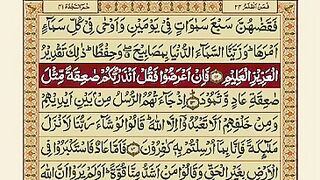 فَمَنۡ اَظۡلَمُ ٢٤
حٰمٓ السَّجۡدَة ٤١
فَقَضٰىهُنَّ سَبۡعَ سَمٰوَاتٍ فِىۡ يَوۡمَيۡنِ وَاَوۡحٰى فِىۡ كُلِّ سَمَآءٍ
اَمۡرَهَا‌ وَزَيَّنَّا السَّمَآءَ الدُّنۡيَا بِمَصَابِيۡحَ وَحِفۡظًا ذٰ لِكَ تَقۡدِيۡرُ
الۡعَزِيۡزِ الۡعَلِيۡمِ ۝ فَاِنۡ اَعۡرَضُوۡا فَقُلۡ اَنۡذَرۡتُكُمۡ صٰعِقَةً مِّثۡلَ
صٰعِقَةِ عَادٍ وَّثَمُوۡدَ ۝ اِذۡ جَآءَتۡهُمُ الرُّسُلُ مِنۡۢ بَيۡنِ اَيۡدِيۡهِمۡ
وَمِنۡ خَلۡفِهِمۡ اَلَّا تَعۡبُدُوۡۤا اِلَّا اللّٰهَ‌ قَالُوۡا لَوۡ شَآءَ رَبُّنَا لَاَنۡزَلَ
مَلٰٓئِكَةً فَاِنَّا بِمَاۤ اُرۡسِلۡتُمۡ بِهٖ كٰفِرُوۡنَ ۝ فَاَمَّا عَادٌ فَاسۡتَكۡبَرُوۡا فِى
الۡاَرۡضِ بِغَيۡرِ الۡحَقِّ وَقَالُوۡا مَنۡ اَشَدُّ مِنَّا قُوَّةً اَوَلَمۡ يَرَوۡا اَنَّ اللّٰهَ